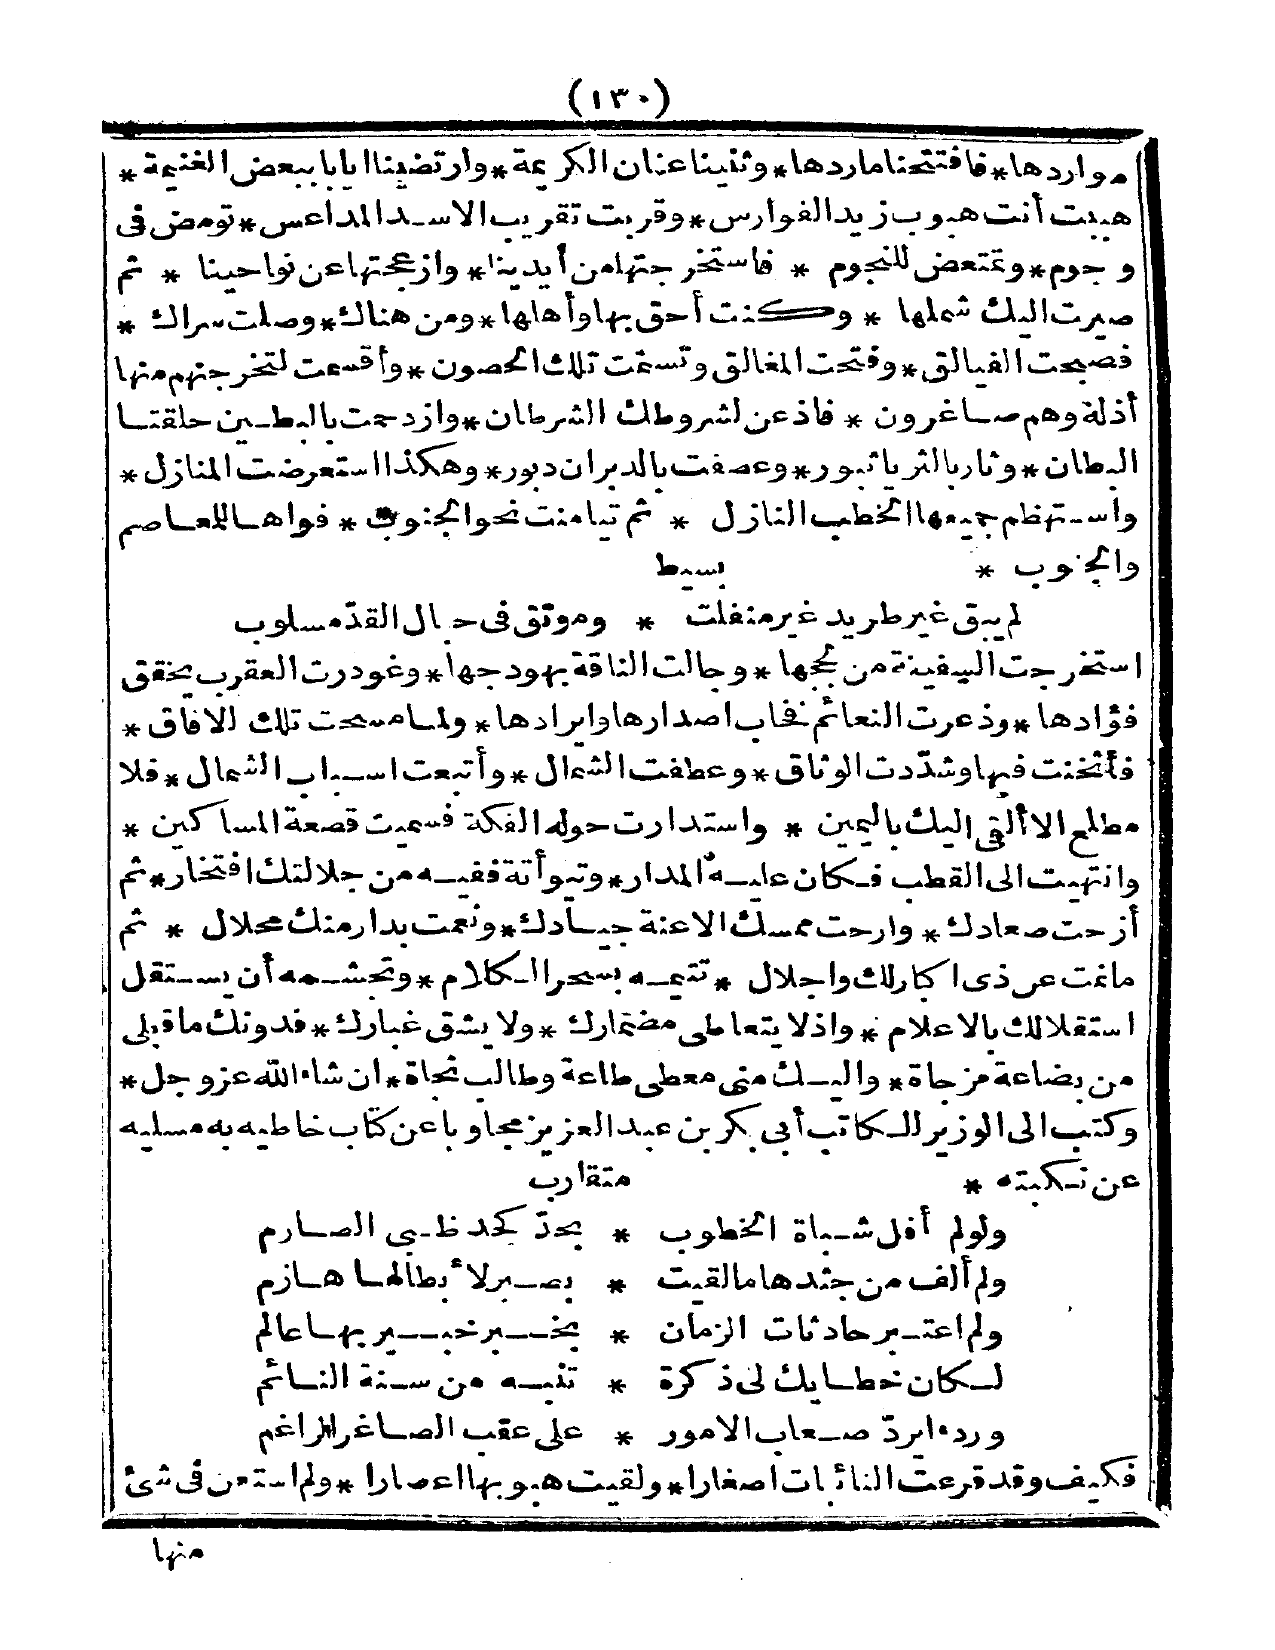 (١٣٠)
مواردها*فافتتحناماردها*وثنيناعنان الكريمة*وارتضيناايابا ببعض الغنيمة*
هببت أنت هبوب زيد الفوارس*وقربت تقريب الاسد المداعس*تومض فى
وجوم*وتتعض للنجوم * فاستخرجتهامن أيدينا*وازعجتهاعن نواحينا * ثم
صيرت اليك شملها * وكنت أحق بها وأهلها*ومن هناك*وصلت سراك *
فصبحت الفيالق*وفتحت المغالق وتسنمت تلك الحصون*وأقسمت لتخرجنهم منها
أذلة وهم صاغرون * فاذعن لشروطك الشرطان*وازدجت بالبطين حلقتا
البطان*وثار بالثريا ثبور*وعصفت بالدبران دبور*وهكذا استعرضت المنازل*
واستهظم جميعها الخطب النازل * ثم تيامنت نحو الجنوب* فواها للمعاصم
والجنوب * بسيط
لم يبق غير طريد غير منفلت * وموثق فى حبال القدّ مسلوب
استخرجت السفينة من لججها*وحالت الناقة بهودجها*وغودرت العقرب يخفق
فؤادها*وذعرت النعائم نخاب اصدارها وايرادها*ولما مسحت تلك الافاق*
فأثخنت فيها وشدّدت الوثاق*وعطفت الشمال*وأتبعت اسباب الشمال*فلا
مطلع الا ألقى اليك باليمين * واستدارت حوله الفكة فسميت قصعة المساكين *
وانتهيت الى القطب فكان عليه المدار*وتبوأته ففيه من جلالتك افتخار*ثم
أزحت صعادك* وارحت ممسك الاعنة جيادك*ونعمت بدار منك محلال * ثم
مانمت عن ذى اكبارلك واجلال *تتيمه بسحر الكلام*وتجشمه أن يستقل
استقلالك بالاعلام*واذ لا يتعاطى مضمارك*ولا يشق غبارك*فدونك ما قبلى
من بضاعة مزجاة*واليك منى معطى طاعة وطالب نجاة*ان شاء الله عز وجل*
وكتب الى الوزير الكاتب أبى بكر بن عبد العزيز مجاوبا عن كتاب خاطبه به مسليه
عن نكبته * متقارب
ولولم أفل شباة الخطوب * بحدّ كحد ظبى الصارم
ولم ألف من جندها ما لقيت * بصبر لأبطالها هازم
ولم اعتبر حادثات الزمان * بخبر خبير بها عالم
لكان خطابك لى ذكرة * تنبه من سنة النائم
ورد ايردّ صعاب الامور * على عقب الصاغر الراغم
فكيف وقد قرعت النائبات اصغارا*ولقيت هبوبها اعصارا*ولم استعن فى شئ
منها